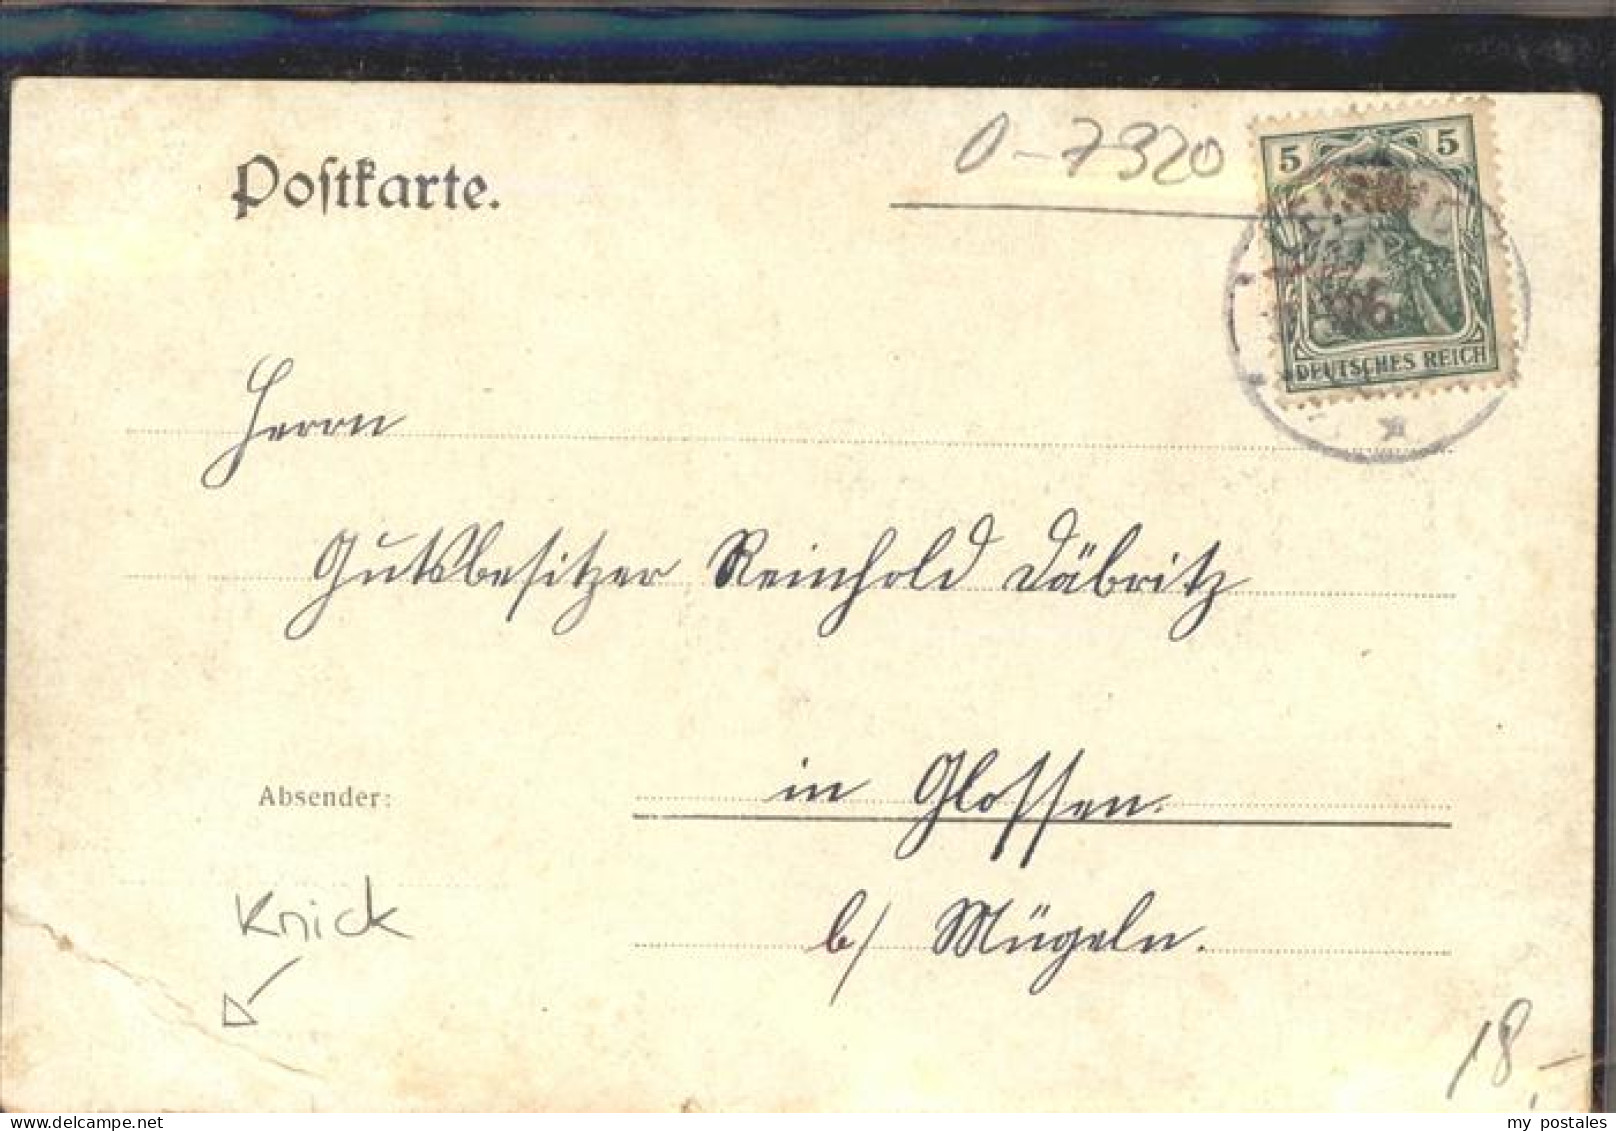 Postkarte.
O-7320
5 5
DEUTSCHES REICH
Herrn
Gutsbesitzer Reinhold Däbritz
in Glossen.
Absender:
Knick
b/ Mügeln.
18,-
my postales